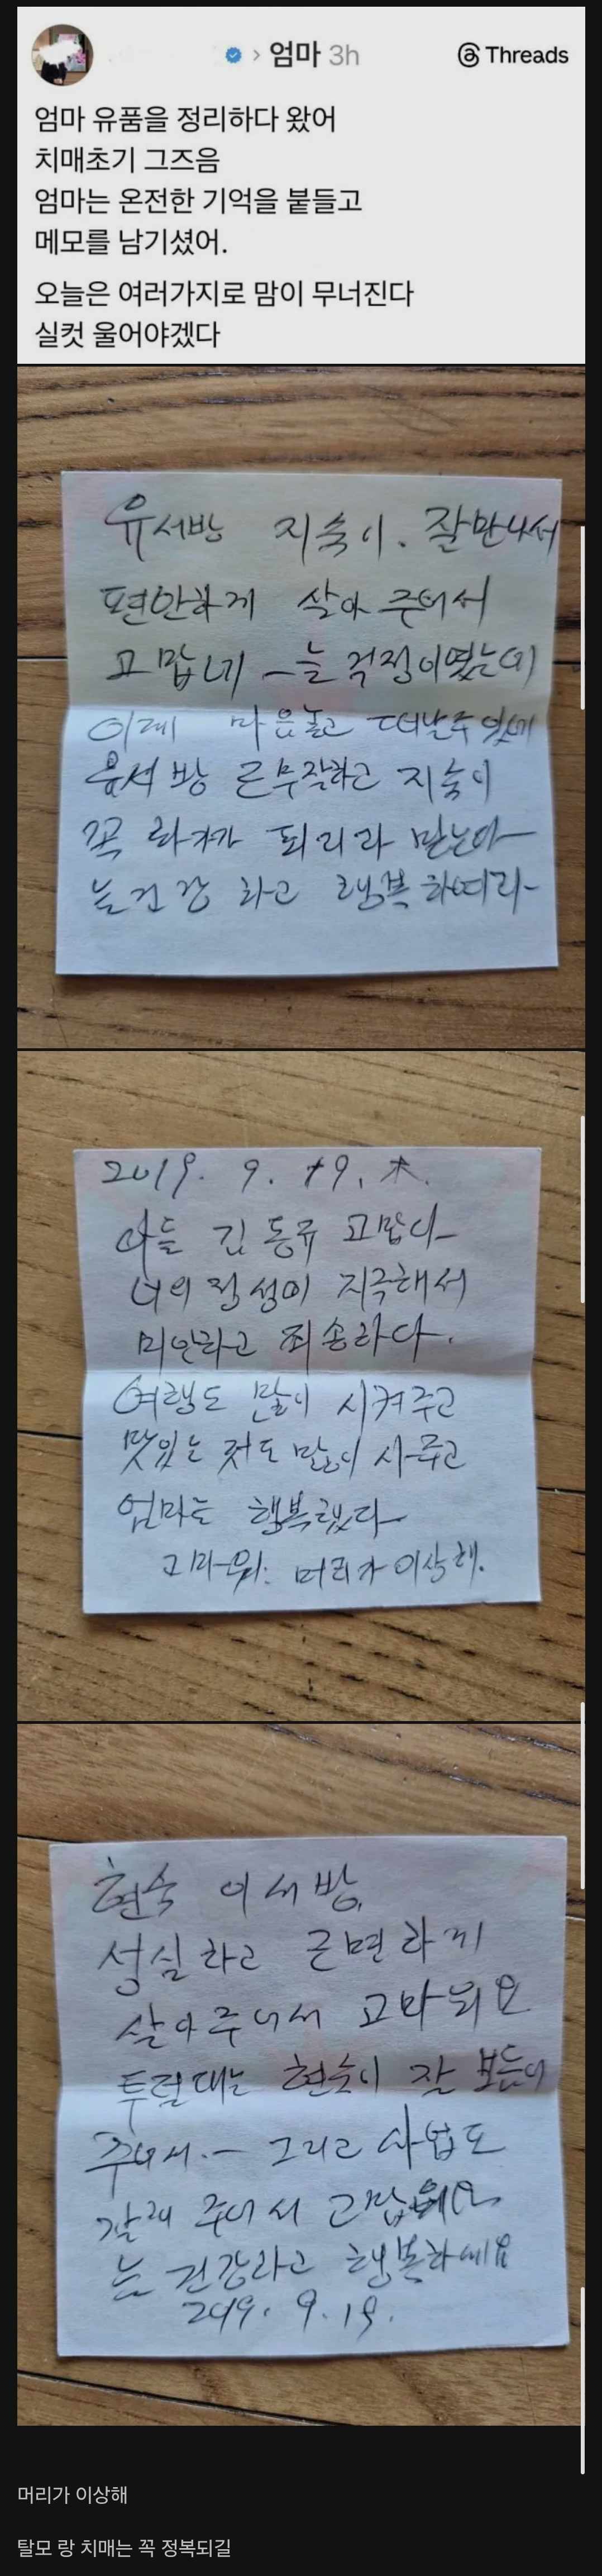 엄마 3h
Threads
엄마 유품을 정리하다 왔어
치매초기 그즈음
엄마는 온전한 기억을 붙들고
메모를 남기셨어.
오늘은 여러가지로 맘이 무너진다
실컷 울어야겠다
유서방 지숙이. 잘만나서
편안하게 살아 주어서
고맙네 늘 걱정이였는데
이제 마음놓고 떠날수 있네
유서방 근무잘하고 지숙이
꼭 화가가 되리라 믿는다
늘건강 하고 행복하여라
2019. 9. 19. 木.
아들 김동규 고맙다
너의 정성이 지극해서
미안하고 죄송하다.
여행도 많이 시켜주고
맛있는 것도 많이 사주고
엄마는 행복했다
고마워. 머리가 이상해.
현숙 이서방.
성실하고 근면하게
살아주어서 고마워요
투렬대는 현숙이 잘 보듬어
주어서. 그리고 사업도
잘해 주어서 고맙
늘 건강하고 행복하세요
2019. 9. 19.
머리가 이상해
탈모 랑 치매는 꼭 정복되길